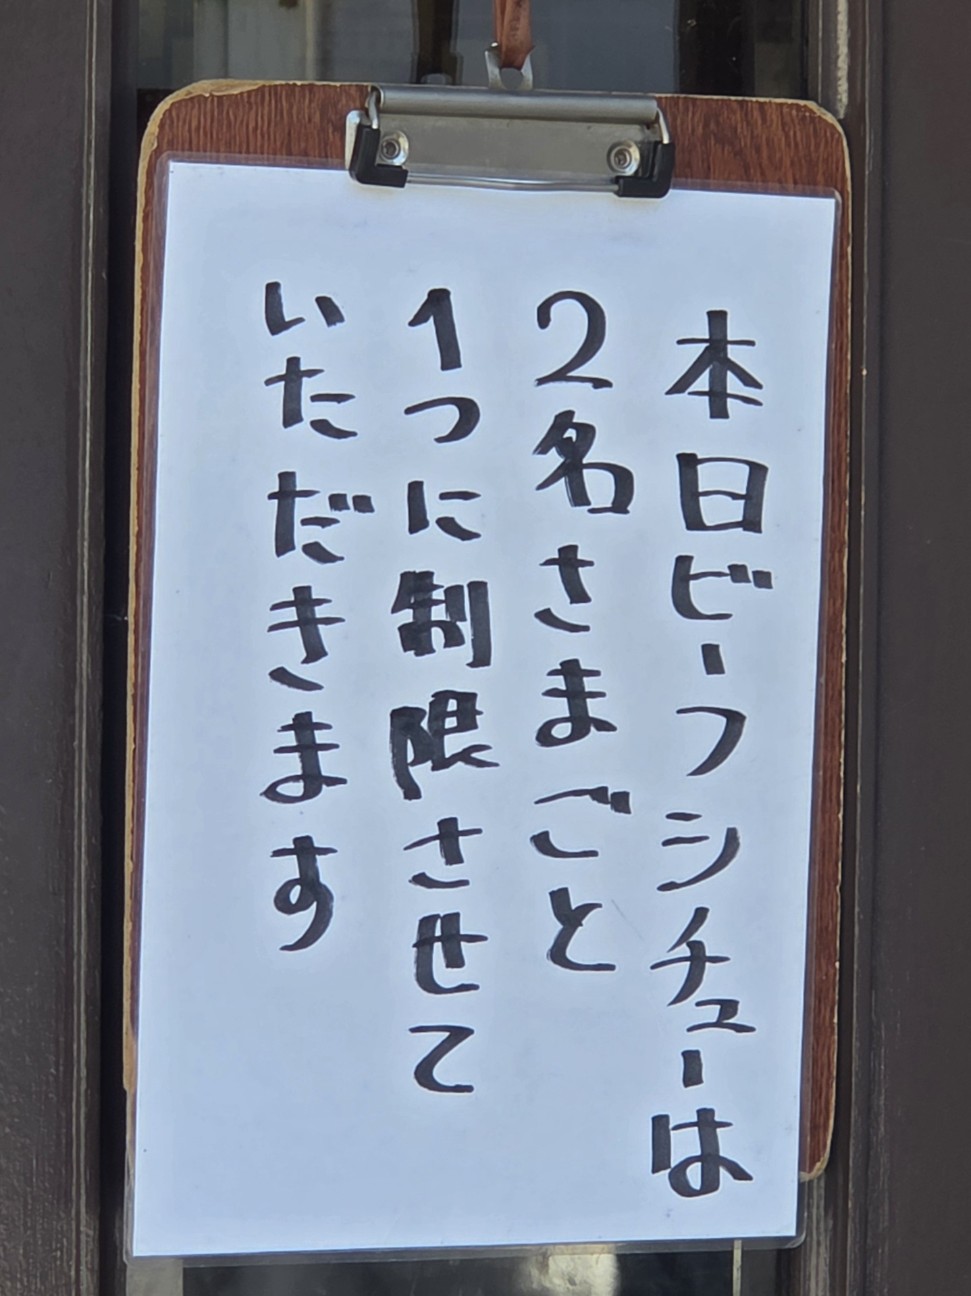 本日ビーフシチューは
2名さまごと
1つに制限させて
いただきます